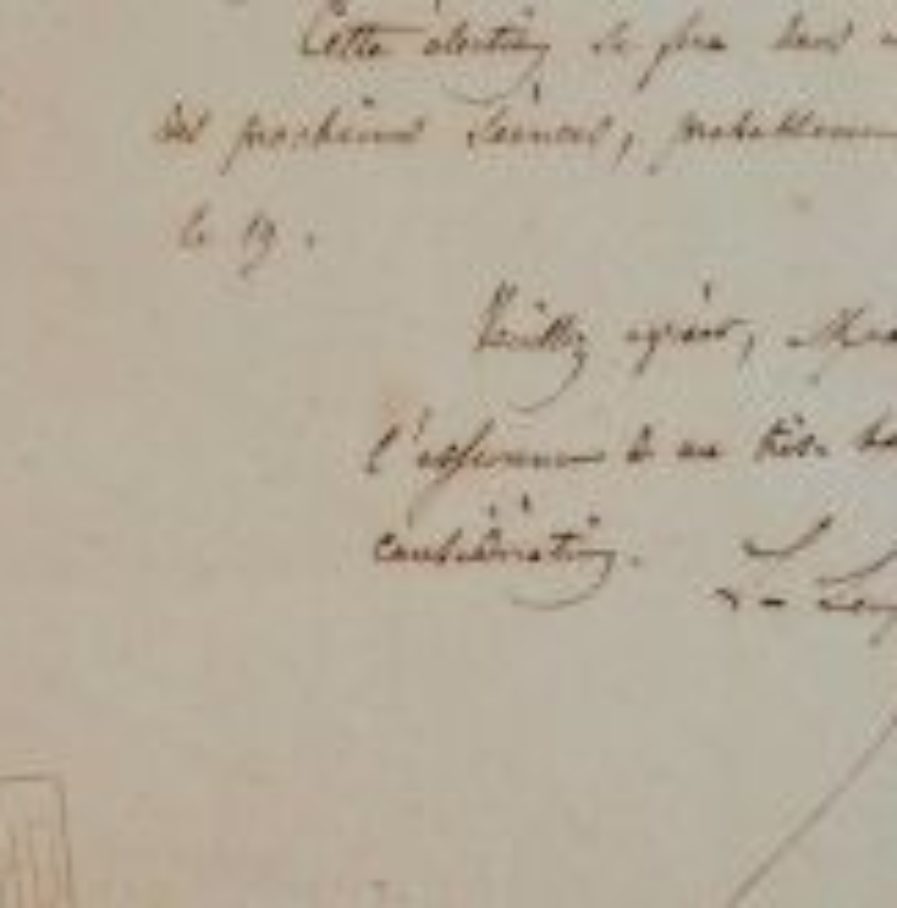 Cette élection se fera dans
des prochaines séances, probablemen
le 19.
Veuillez agréer, M
l'assurance de ma très
considération.